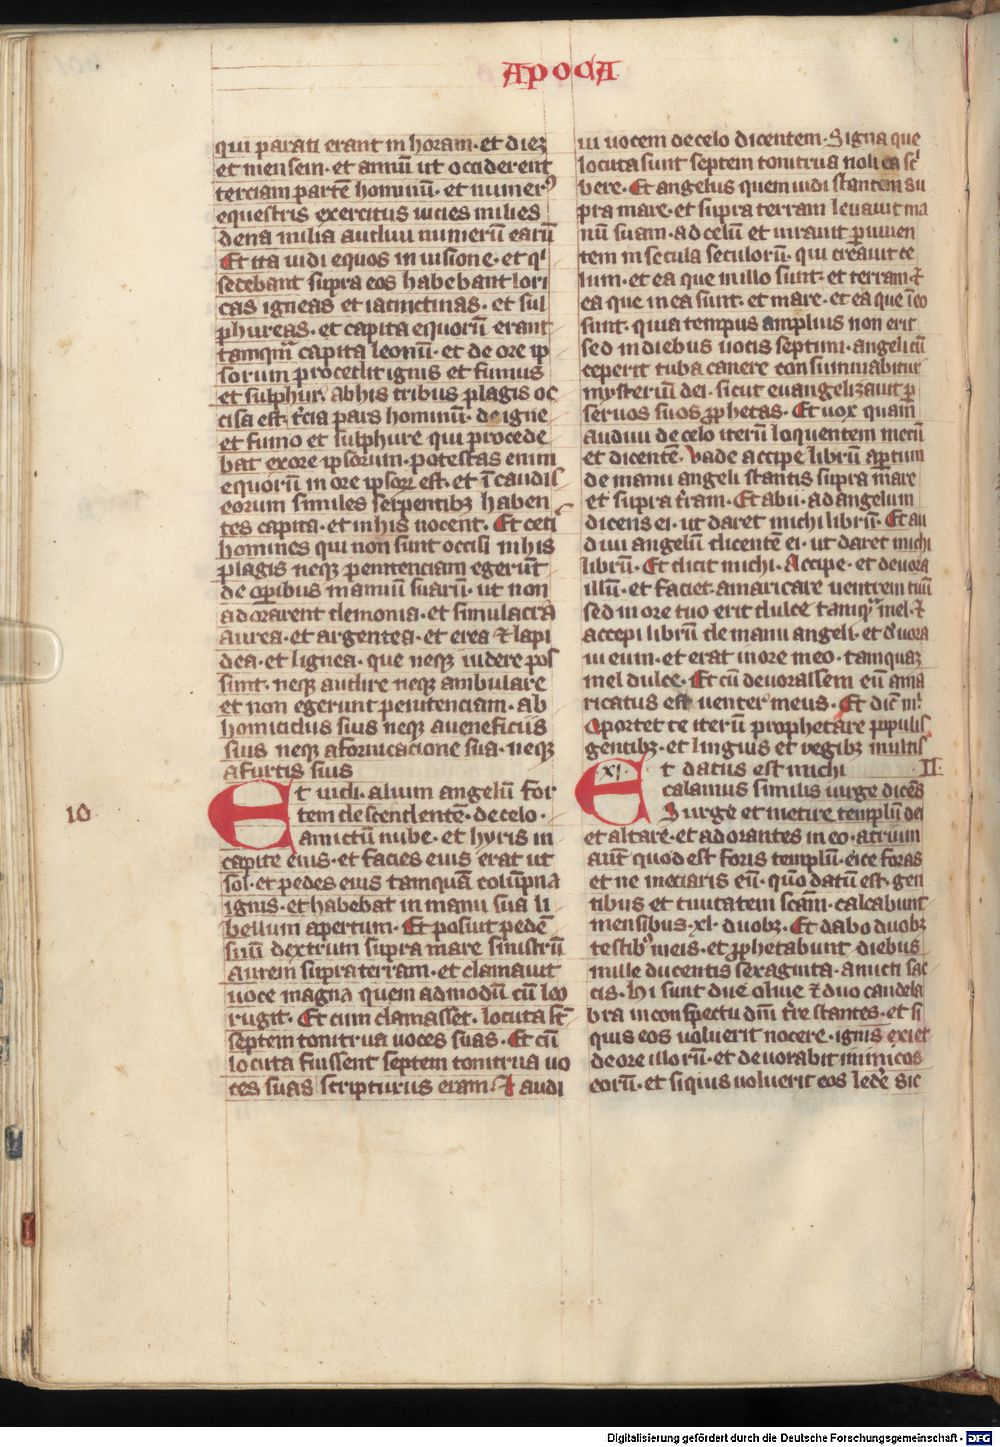 APOCA
qui parati erant in horam · et dieȝ
et mensem · et annū ut occiderent
terciam partē hominū · et numerꝰ
equestris exercitus uicies milies
dena milia audiui numerū earū
Et ita uidi equos in uisione · et qͥ
sedebant supra eos habebant lori
cas igneas et iacinctinas · et sul
phureas · et capita equorū erant
tamqͣm capita leonū · et de ore ip
sorum procedit ignis et fumus
et sulphur · ab his tribus plagis oc
cisa est t̄cia pars hominū · de igne
et fumo et sulphure qui procede
bat ex ore ipsorum · potestas enim
equorū in ore ipsoꝝ est · et ī caudis
eorum similes serpentibȝ haben
tes capita · et in his nocent · Et ceti
homines qui non sunt occisi in his
plagis neqȝ penitenciam egerūt
de opibus manuū suarū · ut non
adorarent demonia · et simulacra
aurea · et argentea · et erea ⁊ lapi
dea · et lignea · que neqȝ uidere pos
sunt · neqȝ audire neqȝ ambulare
et non egerunt penitenciam · ab
homicidiis suis neqȝ a ueneficiis
suis neqȝ a fornicacione sua · neqȝ
a furtis suis
10
Et uidi · alium angelū for
tem descendentē · de celo ·
amictū nube · et hyris in
capite eius · et facies eius erat ut
sol · et pedes eius tamquā colūpna
ignis · et habebat in manu sua li
bellum apertum · Et posuit pedē
suū dextrum supra mare sinistrū
autem supra terram · et clamauit
uoce magna quem admodū cū leo
rugit · Et cum clamasset · locuta st̄
septem tonitrua uoces suas · Et cū
locuta fuissent septem tonitrua uo
ces suas scripturus eram · Et audi
ui uocem de celo dicentem · Signa que
locuta sunt septem tonitrua noli ea scͥ
bere · Et angelus quem uidi stantem su
pra mare · et supra terram leuauit ma
nū suam · ad celū et iurauit p uiuen
tem in secula seculorū · qui creauit ce
lum · et ea que in illo sunt · et terram ⁊
ea que in ea sunt · et mare · et ea que ī eo
sunt · quia tempus amplius non erit
sed in diebus uocis septimi · angeli cū
ceperit tuba canere consummabitur
mysteriū dei · sicut euangelizauit p
seruos suos ꝓphetas · Et uox quam
audiui de celo iterū loquentem mecū
et dicentē · Vade accipe librū aptum
de manu angeli stantis supra mare
et supra t̄ram · Et abii · ad angelum
dicens ei · ut daret michi librū · Et au
diui angelū dicentē ei · ut daret michi
librū · Et dicit michi · Accipe · et deuora
illū · et faciet amaricare uentrem tuū
sed in ore tuo erit dulce tamqͣ mel · ⁊
accepi librū de manu angeli · et deuora
ui eum · et erat in ore meo · tamquaȝ
mel dulce · Et cū deuorassem eū ama
ricatus est uenter meus · Et dic̄ mͥ
Oportet te iterū prophetare populis
gentibȝ · et linguis et regibȝ multis
·XI· Et datus est michi II
calamus similis uirge dicēs
Surge et metire templū dei
et altare · et adorantes in eo · atrium
aut̄ quod est foris templū · eice foras
et ne meciaris eū · qm̄ datū est · gen
tibus et ciuitatem scām · calcabunt
mensibus · xl · duobȝ · Et dabo duobȝ
testibꝰ meis · et ꝓphetabunt diebus
mille ducentis sexaginta · amicti sac
cis · Hi sunt due oliue ⁊ duo candela
bra in conspectu dnī t̄re stantes · et si
quis eos uoluerit nocere · ignis exiet
de ore illorū · et deuorabit inimicos
eorū · et si quis uoluerit eos ledē sic
Digitalisierung gefördert durch die Deutsche Forschungsgemeinschaft - DFG